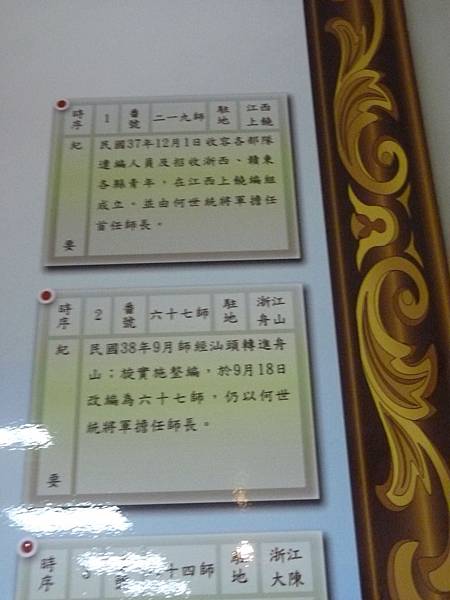 時序 1 番號 二一九師 駐地 江西上饒
紀要 民國37年12月1日收容各部隊
遣編人員及招收浙西、贛東
各縣青年，在江西上饒編組
成立。並由何世統將軍擔任
首任師長。
時序 2 番號 六十七師 駐地 浙江舟山
紀要 民國38年9月師經汕頭轉進舟
山；旋實施整編，於9月18日
改編為六十七師，仍以何世
統將軍擔任師長。
時序 3 號 十四師 駐地 浙江大陳